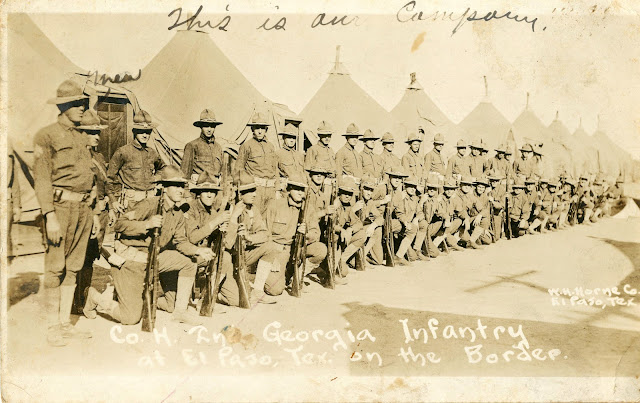 This is our Company!!!
me
W.H. Horne Co.
El Paso, Tex.
Co. H. 2nd Georgia Infantry
at El Paso, Tex. on the Border.